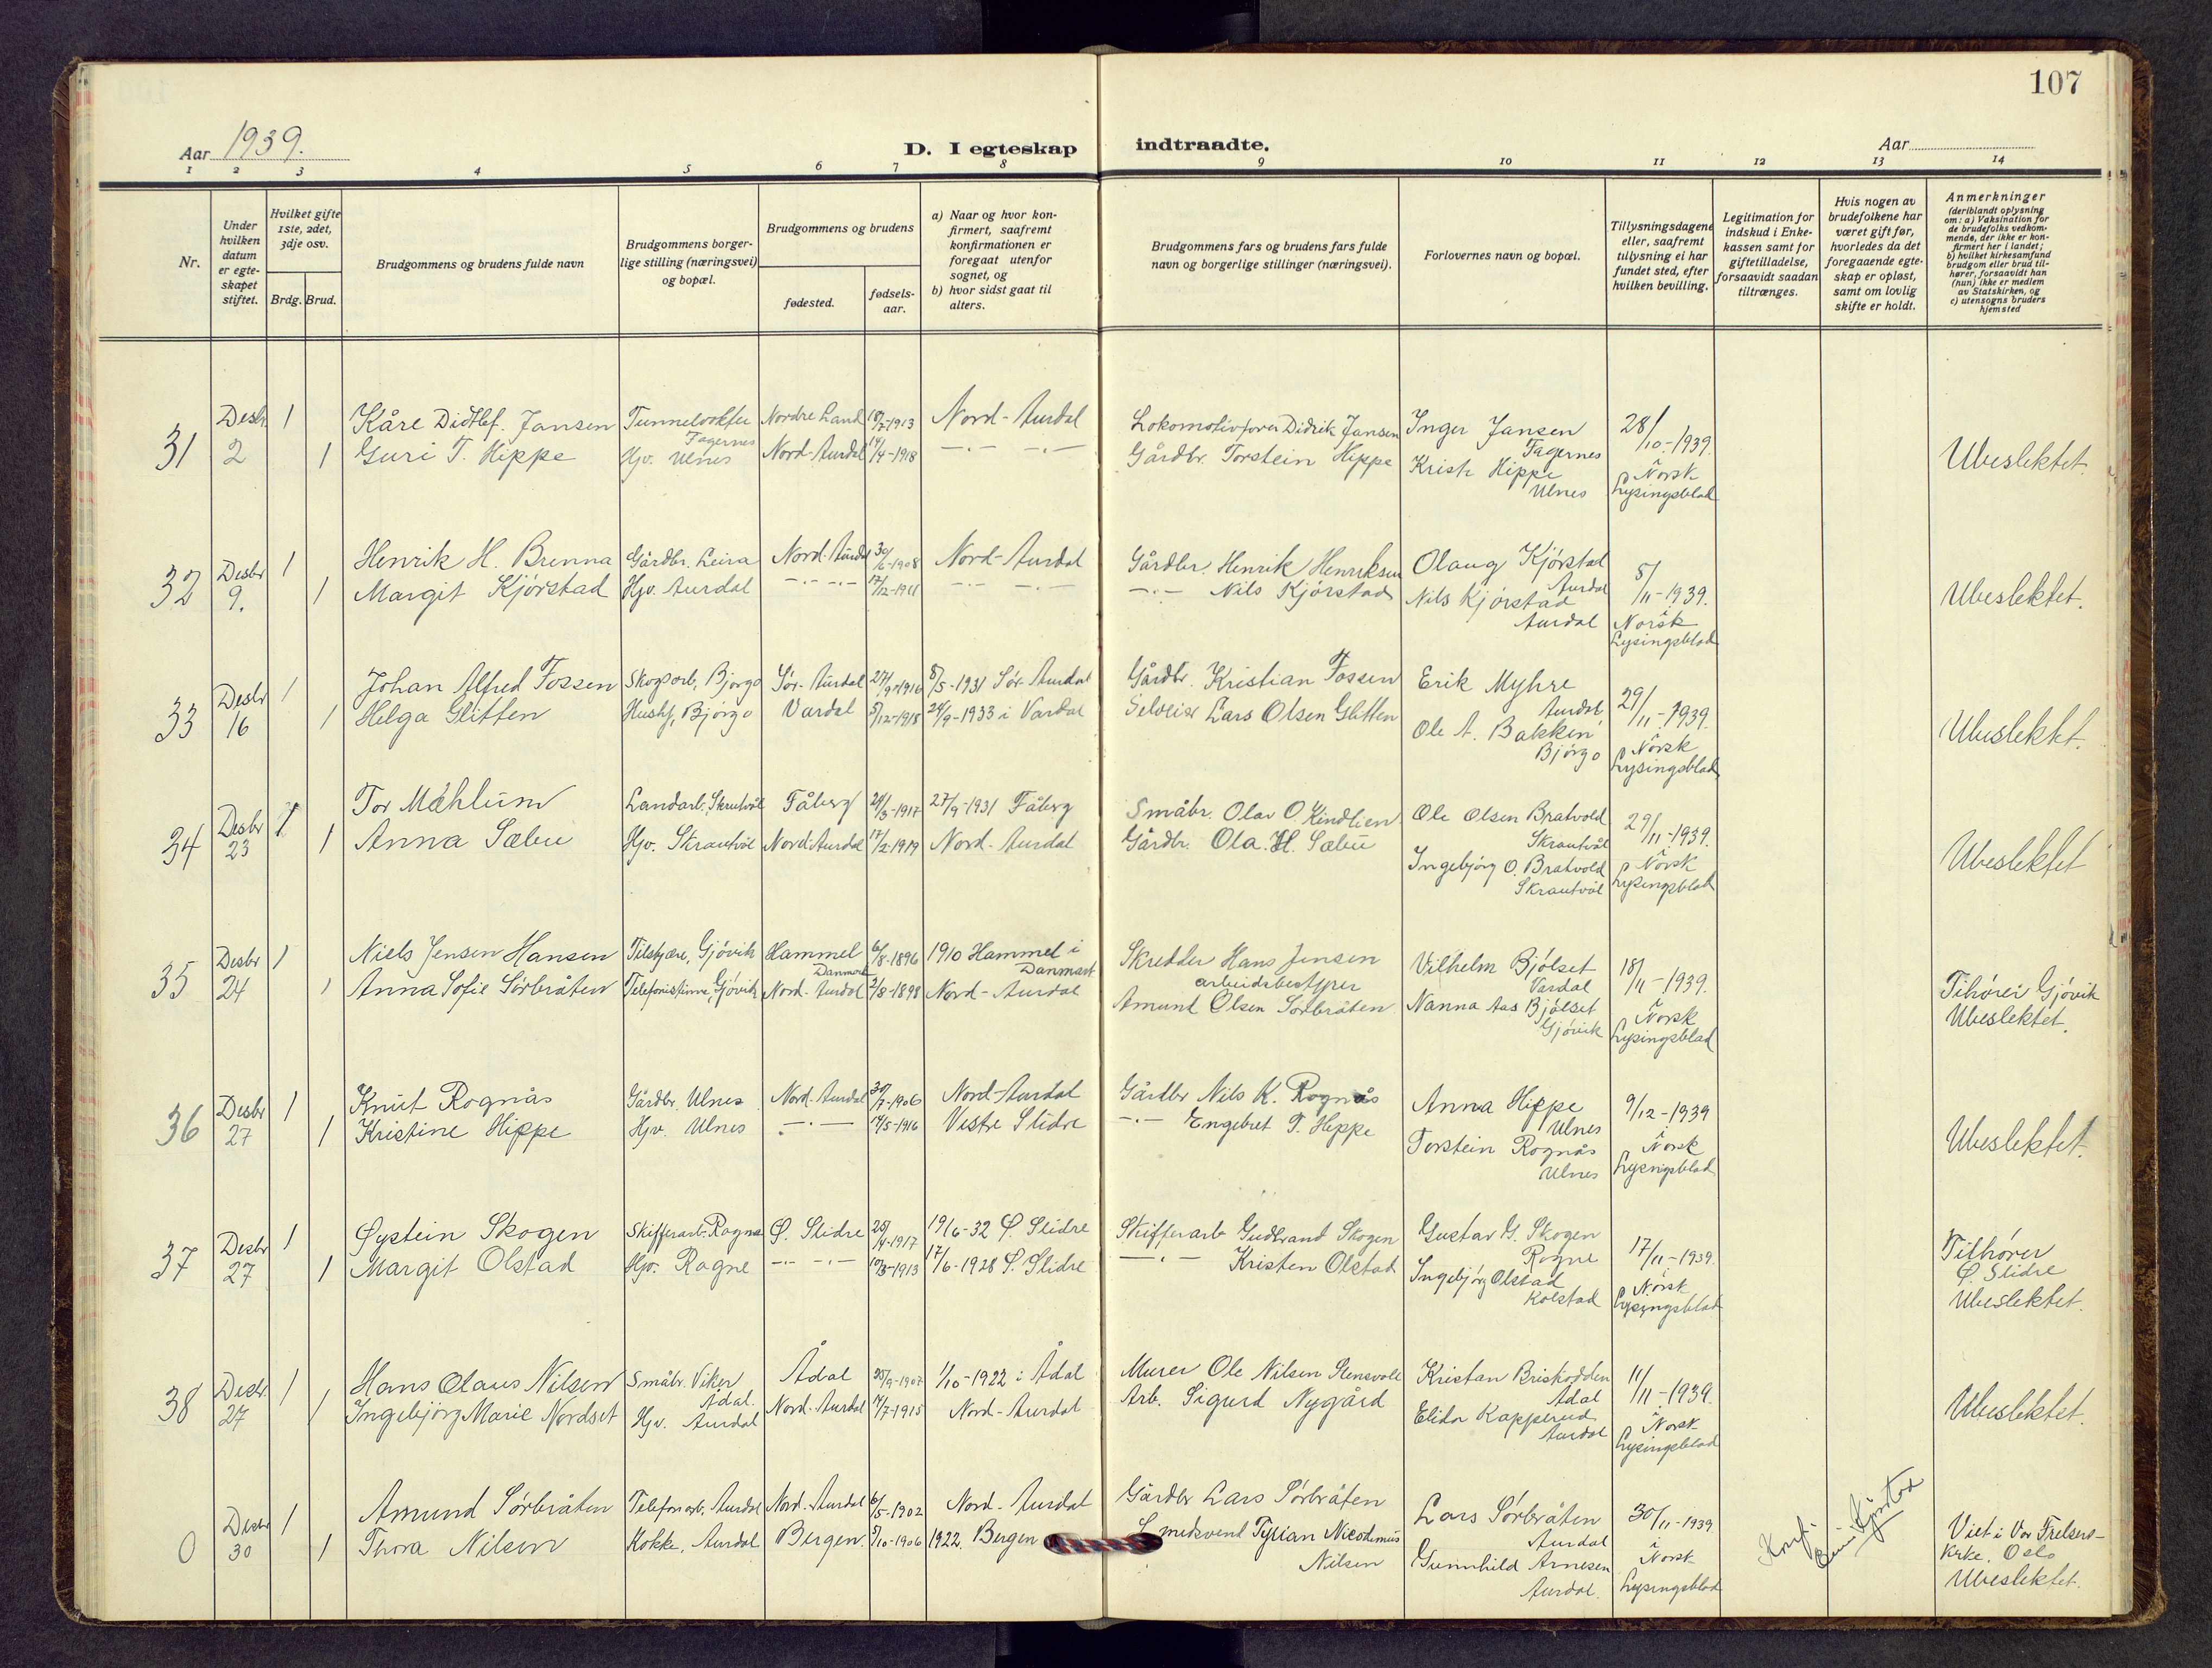 107
Aar 1939.
D. I egteskap indtraadte.
Aar
1 2 3 4 5 6 7 8 9 10 11 12 13 14
Nr.
Under hvilken datum er egteskapet stiftet.
Hvilket gifte 1ste, 2det, 3dje osv.
Brdg. Brud.
Brudgommens og brudens fulde navn
Brudgommens borgerlige stilling (næringsvei) og bopæl.
Brudgommens og brudens
fødested.
fødselsaar.
a) Naar og hvor konfirmert, saafremt konfirmationen er foregaat utenfor sognet, og
b) hvor sidst gaat til alters.
Brudgommens fars og brudens fars fulde navn og borgerlige stillinger (næringsvei).
Forlovernes navn og bopæl.
Tillysningsdagene eller, saafremt tillysning ei har fundet sted, efter hvilken bevilling.
Legitimation for indskud i Enkekassen samt for giftetilladelse, forsaavidt saadan tiltrænges.
Hvis nogen av brudefolkene har været gift før, hvorledes da det foregaaende egteskap er opløst, samt om lovlig skifte er holdt.
Anmerkninger (deriblandt oplysning om: a) Vaksination for de brudefolks vedkommende, der ikke er konfirmert her i landet; b) hvilket kirkesamfund brudgom eller brud tilhører, forsaavidt han (hun) ikke er medlem av Statskirken, og c) utensogns bruders hjemsted
31 Desbr. 2 1 Kåre Didtlef. Jansen Fagernes Nordre Land 18/7-1913 Nord-Aurdal Lokomotivfører Didrik Jansen Inger Jansen Fagernes 28/10-1939.
1 Guri T. Hippe Hjv. Ulnes Nord-Aurdal 14/4-1918 -.- -.- Gårdbr. Torstein Hippe Kristi Hippe Ulnes Norsk Lysingsblad Ubeslektet.
32 Desbr 9. 1 Henrik H. Brenna Gårdbr. Leira Nord-Aurdal 30/6-1908 Nord-Aurdal Gårdbr Henrik Henriksen Olaug Kjørstad Aurdal 8/11-1939.
1 Margit Kjørstad Hjv. Aurdal -.- -.- 17/12-1911 -.- -.- -.- Nils Kjørstad Nils Kjørstad Aurdal i Norsk Lysingsblad Ubeslektet.
33 Desbr 16 1 Johan Alfred Fossen Skogsarb, Bjørgo Sør-Aurdal 27/9-1916 8/5-1931 Sør-Aurdal Gårdbr. Kristian Fossen Erik Myhre Aurdal 29/11-1939.
1 Helga Glitten Hush, Bjørgo Vardal 5/12-1918 24/9-1933 i Vardal Selveier Lars Olsen Glitten Ole A. Bakken Bjørgo i Norsk Lysingsblad Ubeslektet.
34 Desbr 23 1 Tor Mæhlum Landarb., Skrautvål Fåberg 29/3-1917 27/9-1931 Fåberg Småbr. Olav O Kindlien Ole Olsen Bratvold Skrautvål 29/11-1939.
1 Anna Sæbu Hjv. Skrautvål Nord-Aurdal 17/2-1919 Nord-Aurdal Gårdbr. Ola. H. Sæbu Ingebjørg O. Bratvold Skrautvål i Norsk Lysingsblad Ubeslektet
35 Desbr 24 1 Niels Jensen Hansen Gjøvik Hammel Danmark 6/8-1896 1910 Hammel i Danmark Skredder Hans Jensen Vilhelm Bjølset Vardal 18/11-1939.
1 Anna Sofie Sørbråten Telefonistinne, Gjøvik Nord-Aurdal 2/8-1898 Nord-Aurdal arbeidsbestyrer Amund Olsen Sørbråten Nanna Aas Bjølset Gjøvik i Norsk Lysingsblad Tilhører Gjøvik Ubeslektet.
36 Desbr 27 1 Knut Rognås Gårdbr. Ulnes Nord-Aurdal 30/7-1906 Nord-Aurdal Gårdbr Nils K. Rognås Anna Hippe Ulnes 9/12-1939
1 Kristine Hippe Hjv. Ulnes -.- 17/5-1916 Vestre Slidre -.- Engebret T. Hippe Torstein Rognås Ulnes i Norsk Lysingsblad Ubeslektet.
37 Desbr 27 1 Øystein Skogen Skifferarb. Rogne Ø. Slidre 25/4-1917 19/6-32 Ø. Slidre Skifferarb Gudbrand Skogen Gustav G. Skogen Rogne 17/11-1939.
1 Margit Olstad Hjv. Rogne -.- -.- 10/3-1913 17/6-1928 Ø. Slidre -.- Kristen Olstad Ingebjørg Olstad Kolstad i Norsk Lysingsblad Tilhører Ø. Slidre Ubeslektet.
38 Desbr. 27 1 Hans Olaus Nilsen Småbr. Viker Ådal. Ådal 25/9-1907 1/10-1922 i Ådal Murer Ole Nilsen Stensvoll Kristan Briskodden Ådal 11/11-1939.
1 Ingebjørg Marie Nordset Hjv. Aurdal Nord-Aurdal 14/7-1915 Nord-Aurdal Arb. Sigurd Nygård Elida Kapperud Aurdal i Norsk Lysingsblad Ubeslektet.
0 Desbr 30 1 Amund Sørbråten Telefonarb, Aurdal Nord-Aurdal 6/5-1902 Nord-Aurdal Gårdbr Lars Sørbråten Lars Sørbråten Aurdal 30/11-1939
1 Thora Nilsen Kokke, Aurdal Bergen. 5/10-1906 1922. Bergen Smedsvend Tyrian Nicodemus Nilsen Gunnhild Arnesen Aurdal. i Norsk Lysingsblad Viet i Vor Frelsers-kirke. Oslo Ubeslektet.